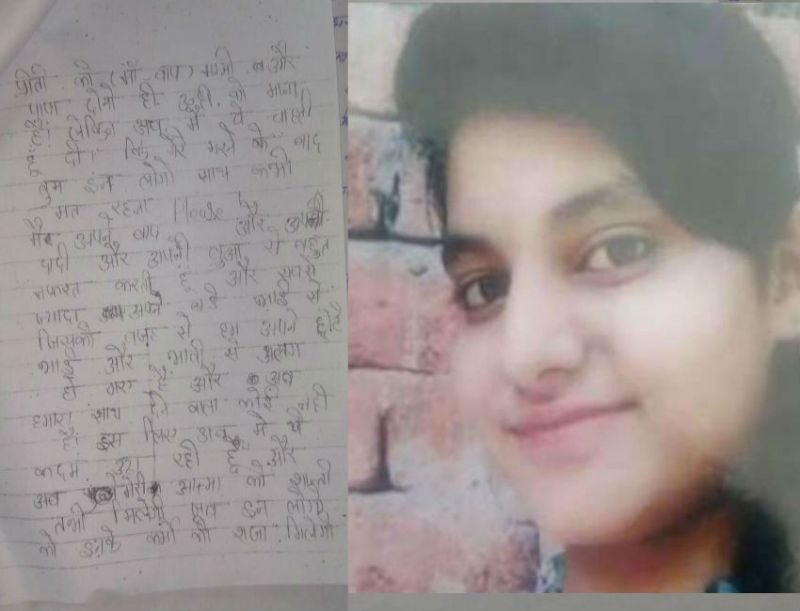 प्रीती को (माँ बाप) मम्मी और
पापा दोनो ही उन्ही को माना
है। लेकिन अब में ये चाहती
हूँ दी। कि मेरे मरने के बाद
तुम इन लोगो साथ कभी
मत रहना Please
मैं अपने बाप और अपनी
दादी और अपनी बुआ से बहुत
नफरत करती हूँ और सबसे
ज्यादा अपने बडे भाई से
जिसकी वजह से हम अपने छोटे
भाई और भाभी से अलग
हो गए है और अब
हमारा साथ देने वाला कोई नही
है। इस लिए अब में ये
कदम उठा रही हूँ और
अब मेरी आत्मा को शान्ती
तभी मिलेगी जब इन लोगो
को इनके कर्मो की सजा मिलेगी